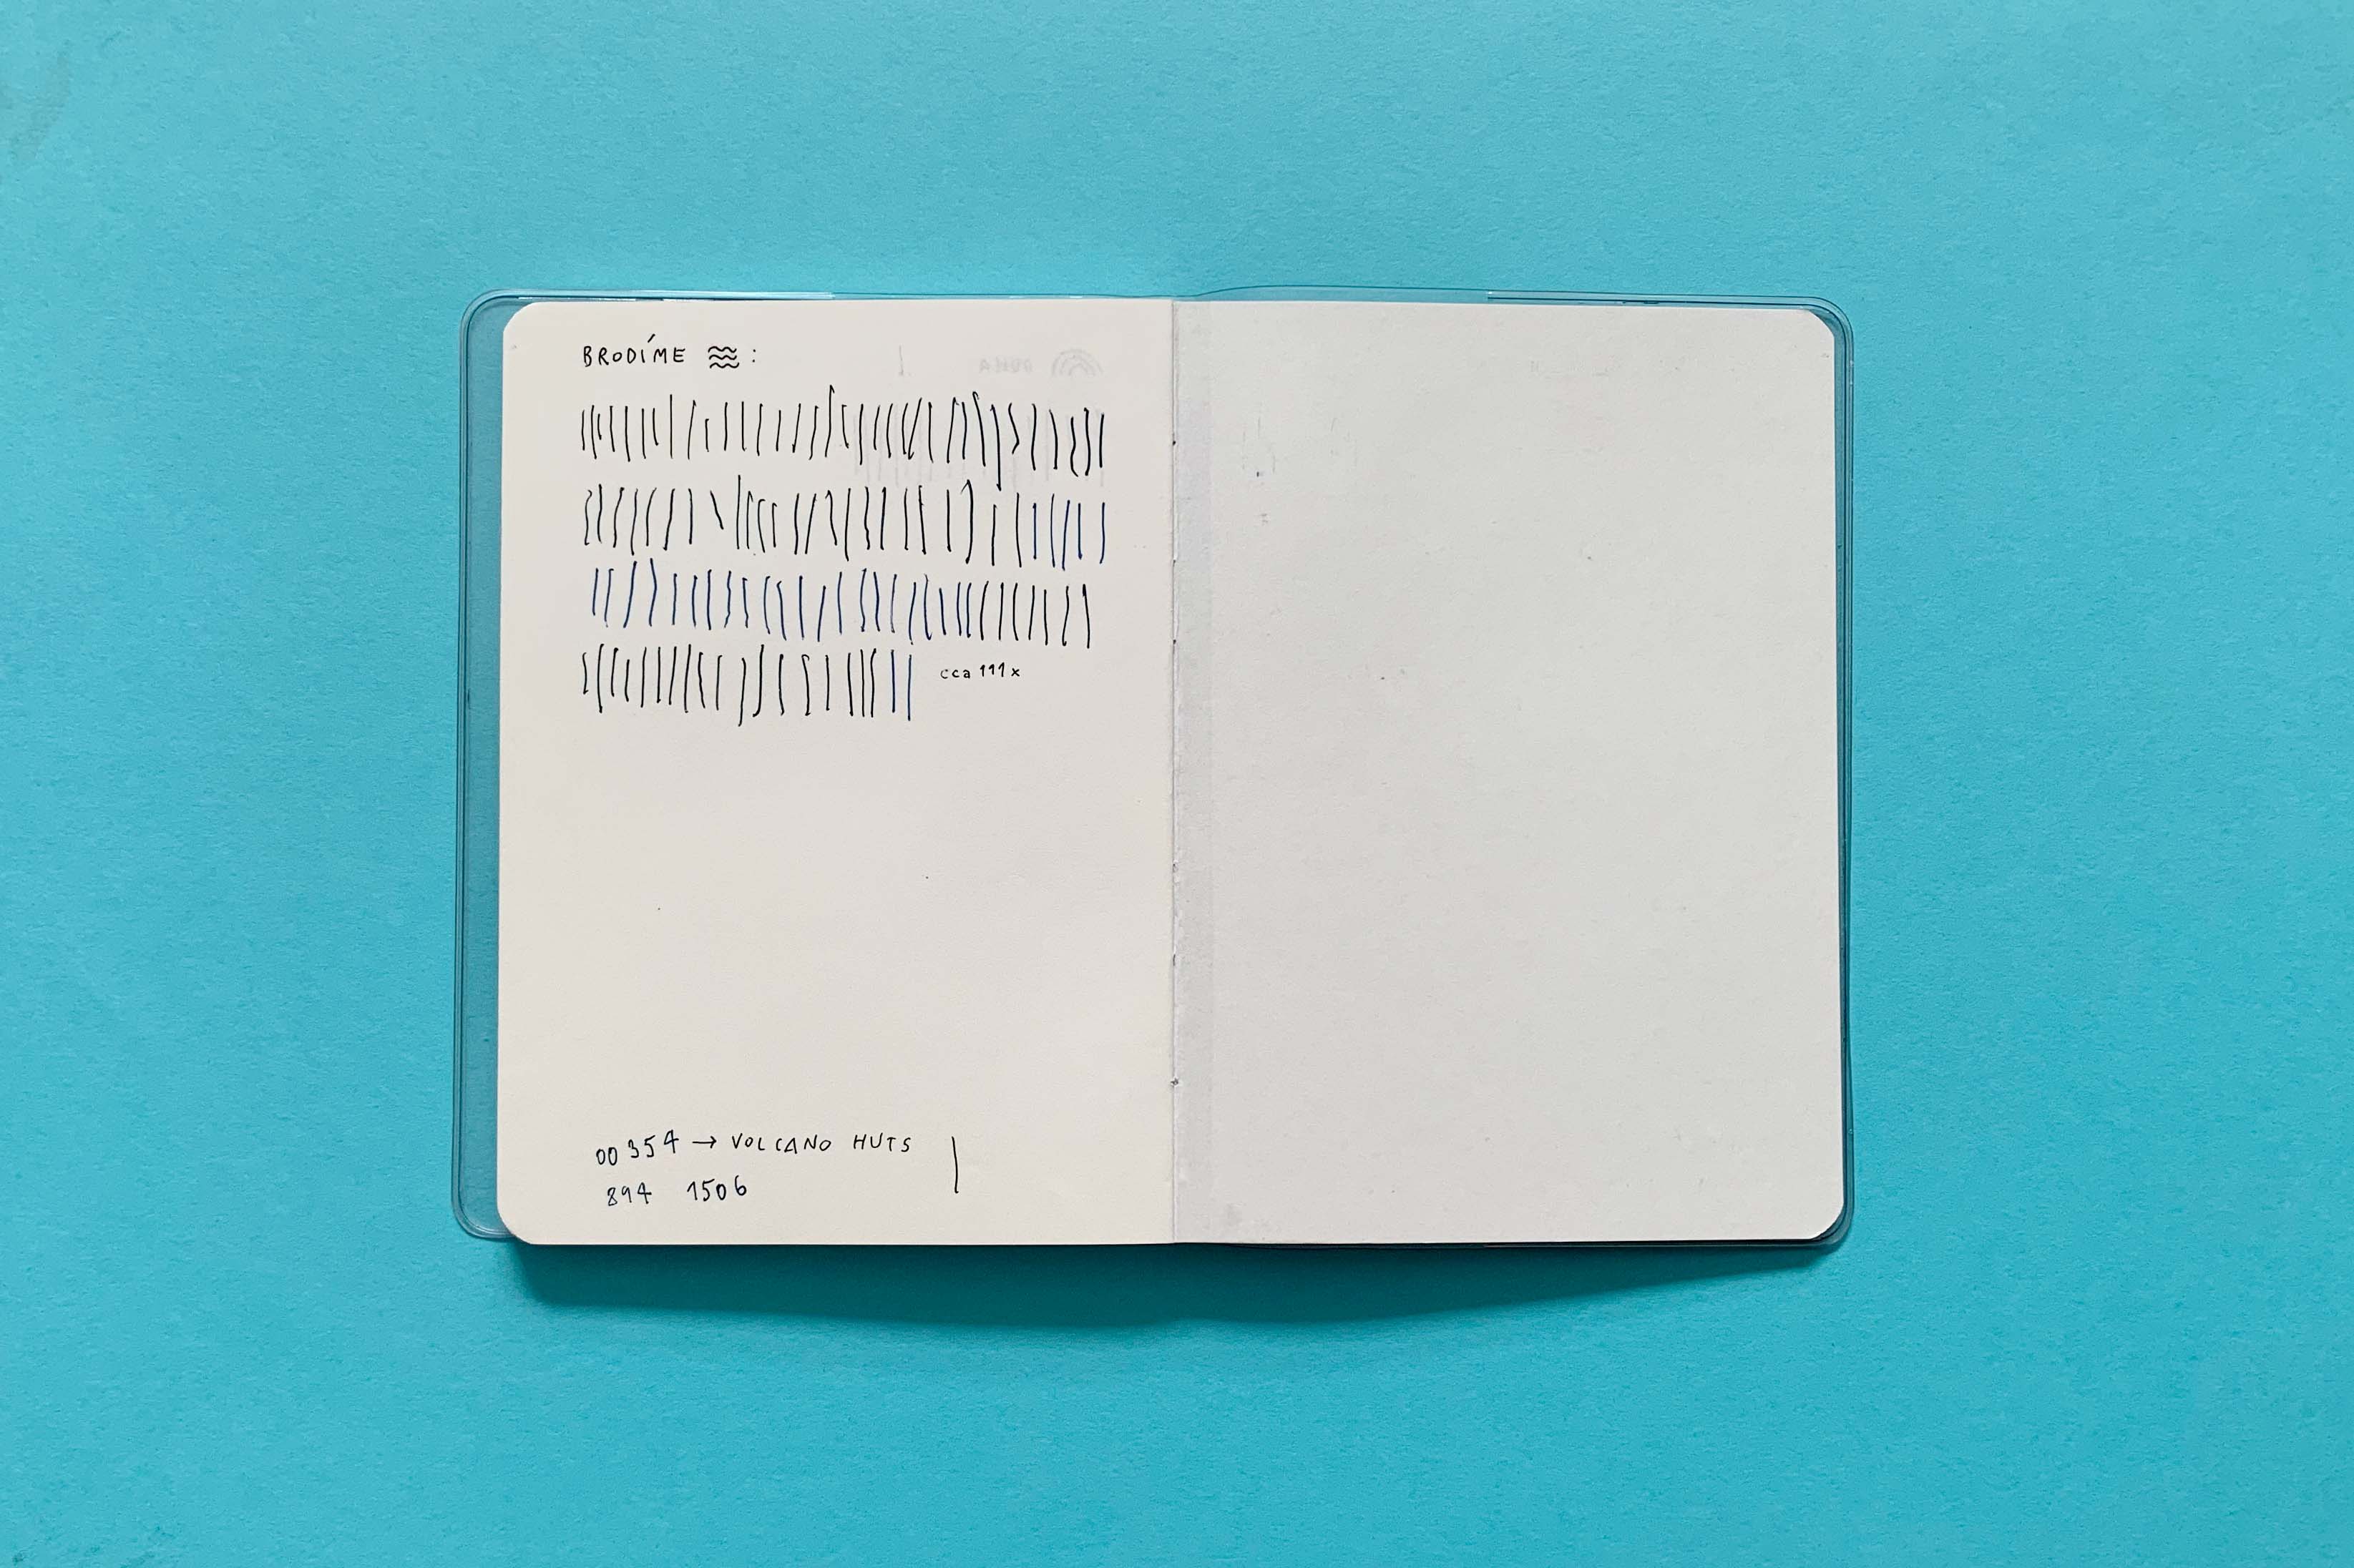 BRODÍME :
cca 111x
00354 → VOLCANO HUTS
894 1506